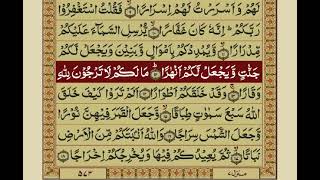 لَهُمْ وَاَسْرَرْتُ لَهُمْ اِسْرَارًا ۙ فَقُلْتُ اسْتَغْفِرُوْا
رَبَّكُمْ ؕ اِنَّهٗ كَانَ غَفَّارًا ۙ يُّرْسِلِ السَّمَآءَ عَلَيْكُمْ
مِّدْرَارًا ۙ وَّيُمْدِدْكُمْ بِاَمْوَالٍ وَّبَنِيْنَ وَيَجْعَلْ لَّكُمْ
جَنّٰتٍ وَّيَجْعَلْ لَّكُمْ اَنْهٰرًا ؕ مَا لَكُمْ لَا تَرْجُوْنَ لِلّٰهِ
وَقَارًا ۚ وَقَدْ خَلَقَكُمْ اَطْوَارًا اَلَمْ تَرَوْا كَيْفَ خَلَقَ
اللّٰهُ سَبْعَ سَمٰوٰتٍ طِبَاقًا ۙ وَّجَعَلَ الْقَمَرَ فِيْهِنَّ نُوْرًا
وَّجَعَلَ الشَّمْسَ سِرَاجًا وَاللّٰهُ اَنْۢبَتَكُمْ مِّنَ الْاَرْضِ
نَبَاتًا ۙ ثُمَّ يُعِيْدُكُمْ فِيْهَا وَيُخْرِجُكُمْ اِخْرَاجًا
منزل ۷
۵۷۳